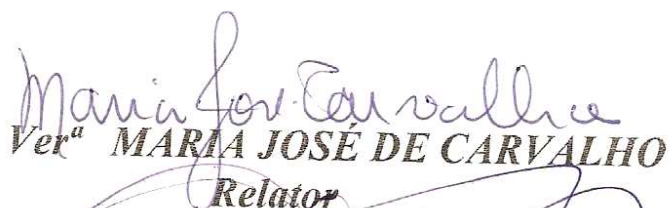 Maria José Carvalho
Verª MARIA JOSÉ DE CARVALHO
Relator